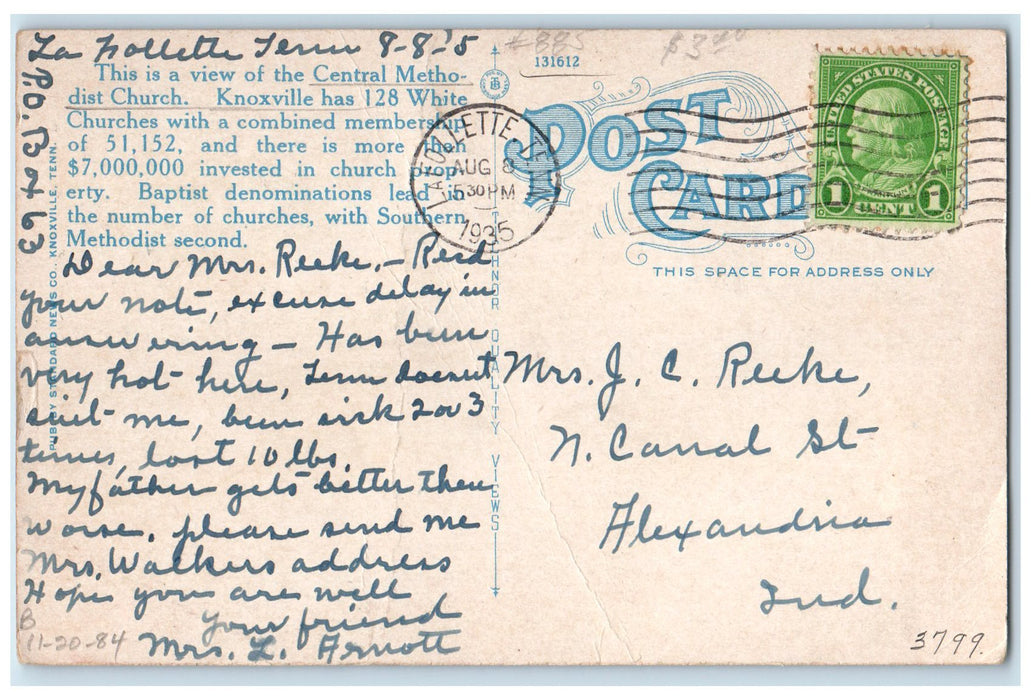 La Follette Tenn 8-8-'5
#885
$3.00
131612
P.O. Box 63
This is a view of the Central Metho-
dist Church. Knoxville has 128 White
Churches with a combined membership
of 51,152, and there is more than
$7,000,000 invested in church prop-
erty. Baptist denominations lead in
the number of churches, with Southern
Methodist second.
Dear Mrs. Reeke,— Recd
your note, excuse delay in
answering — Has been
very hot here, Tenn doesent
suit me, been sick 2 or 3
times, lost 10 lbs.
My father gets better then
worse. please send me
Mrs. Walkers address
Hope you are well
your friend
Mrs. L. Arnott
B
11-20-84
PUB. BY STANDARD NEWS CO. KNOXVILLE, TENN.
QUALITY VIEWS
LAFOLLETTE, TENN.
AUG 8
5 30 PM
1935
POST
CARD
UNITED STATES POSTAGE
FRANKLIN
1 CENT 1
THIS SPACE FOR ADDRESS ONLY
Mrs. J. C. Reeke,
N. Canal St
Alexandria
Ind.
3799.